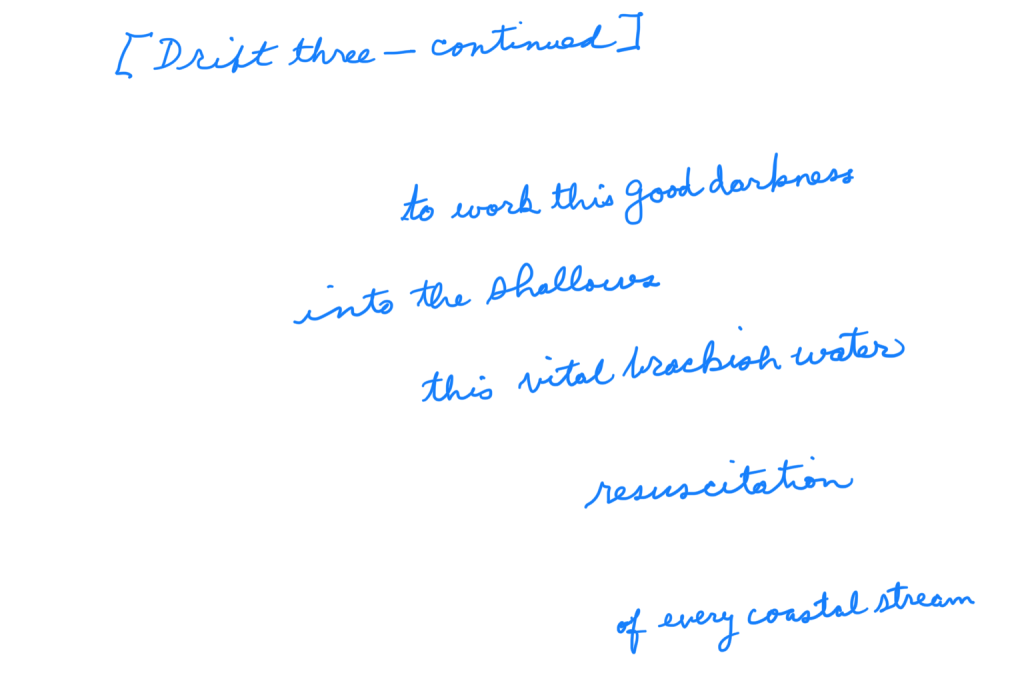 [Drift three — continued]
to work this good darkness
into the shallows
this vital brackish water
resuscitation
of every coastal stream